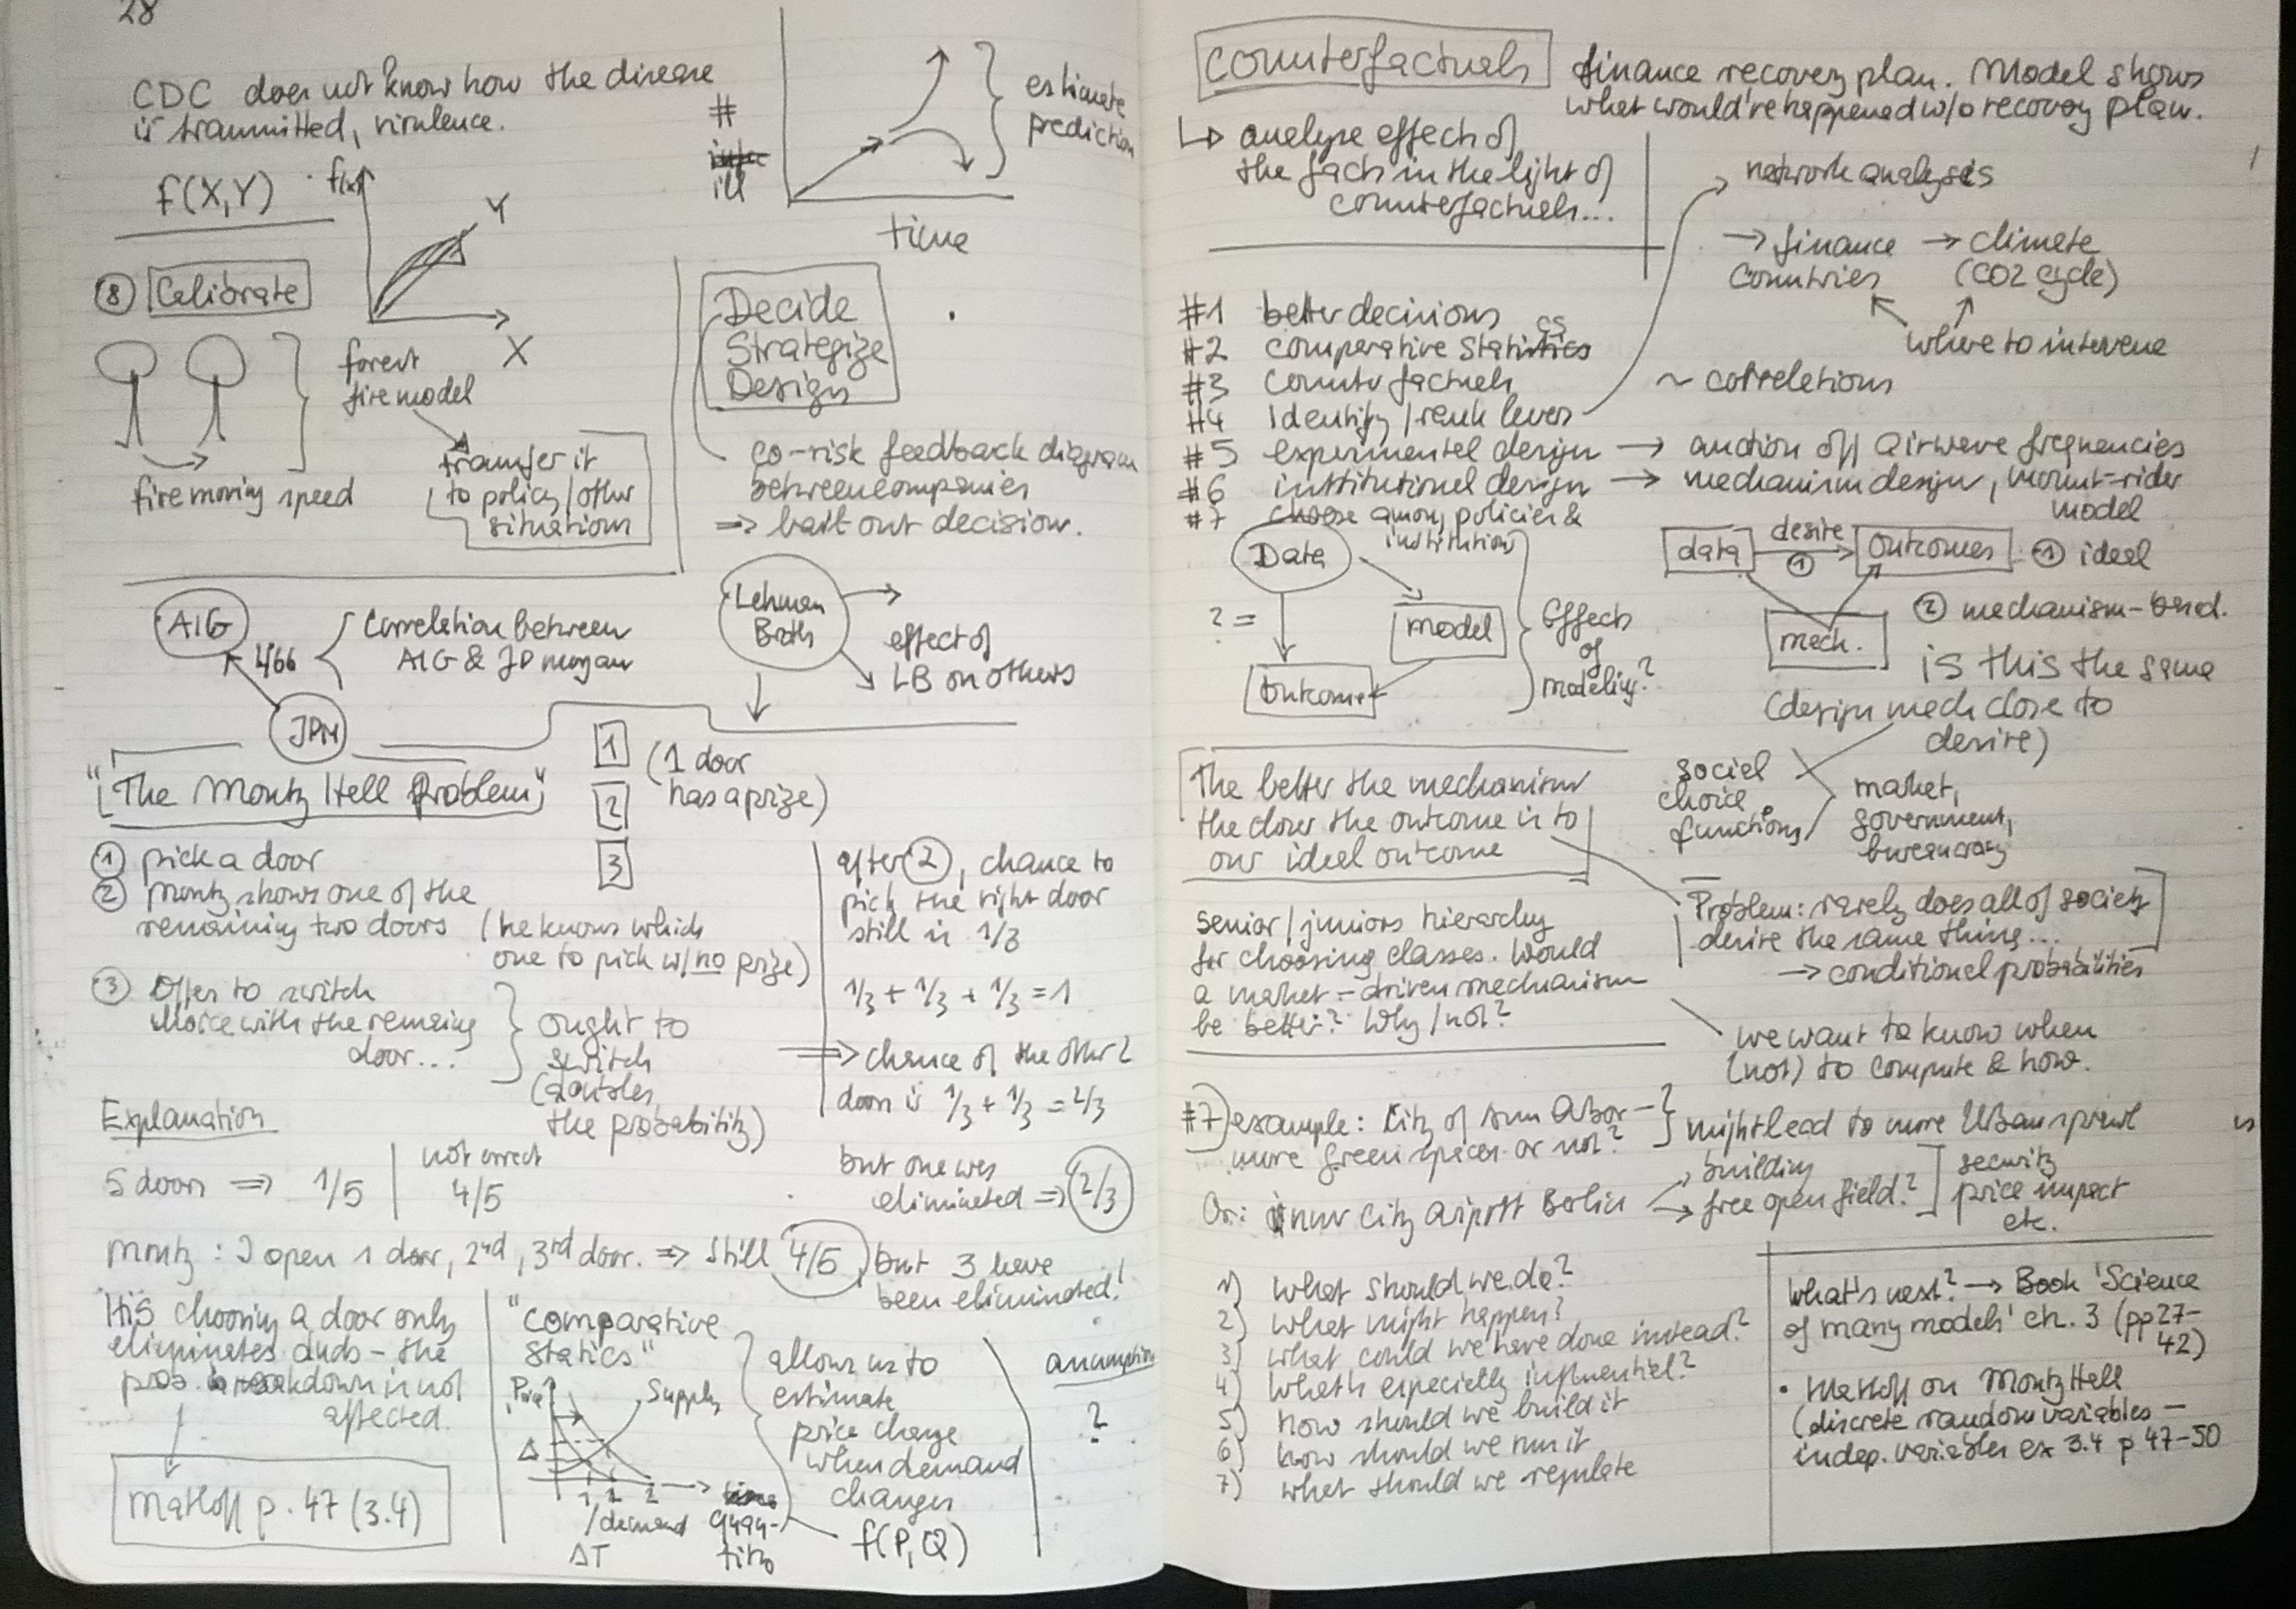 28
CDC does not know how the disease
is transmitted, virulence.
f(X,Y)
f(x)
Y
X
#
ill
time
estimate
prediction
⑧ Calibrate
forest
fire model
fire moving speed
transfer it
to policy/other
situations
Decide
Strategize
Design
co-risk feedback diagram
between companies
⇒ bail out decision.
AIG
466
JPM
Correlation between
AIG & JP Morgan
Lehman
Broth
effect of
LB on others
"The Monty Hall Problem"
1
2
3
(1 door
has a prize)
① pick a door
② Monty shows one of the
remaining two doors (he knows which
one to pick w/ no prize)
③ Offers to switch
choice with the remaing
door...
ought to
switch
(doubles
the probability)
after ②, chance to
pick the right door
still is 1/3
1/3 + 1/3 + 1/3 = 1
⇒ chance of the other 2
doors is 1/3 + 1/3 = 2/3
but one was
eliminated ⇒ 2/3
Explanation
5 doors ⇒ 1/5
not correct
4/5
Monty: I open 1 door, 2nd, 3rd door. ⇒ still 4/5, but 3 have
been eliminated!
His choosing a door only
eliminates duds – the
prob. breakdown is not
affected.
Mathoff p. 47 (3.4)
"comparative
statics"
Price
Supply
Δ
1 2
demand
ΔT
quan-
tity
allows us to
estimate
price change
when demand
changes
f(P,Q)
assumption
?
Counterfactuals
finance recovery plan. Model shows
what would've happened w/o recovery plan.
↳ analyze effect of
the facts in the light of
counterfactuals...
network analysis
→ finance → climate
countries (CO2 cycle)
where to intervene
#1 better decisions
#2 comparative statics
#3 counterfactuals ~ correlations
#4 Identify/rank levers
#5 experimental design → auction off airwave frequencies
#6 institutional design → mechanism design, mount-rider
model
#7 choose among policies &
institutions
Data
? =
Model
Outcome
Effects
of
modeling?
data
desire
①
outcomes
① ideal
mech.
② mechanism-based.
is this the same
(design mech close to
desire)
The better the mechanism
the closer the outcome is to
our ideal outcome
social
choice
functions
market,
government,
bureaucracy
Problem: rarely does all of society
desire the same thing...
→ conditional probabilities
senior/juniors hierarchy
for choosing classes. Would
a market-driven mechanism
be better? Why/not?
we want to know when
(not) to compute & how.
#7 example: City of Ann Abor –
more green spaces or not?
might lead to more Urban sprawl
Or: inner City Airport Berlin
building
free open field?
security
price impact
etc.
1) what should we do?
2) what might happen?
3) what could we have done instead?
4) what's especially influential?
5) how should we build it
6) how should we run it
7) what should we regulate
What's next? → Book 'Science
of many models' ch. 3 (pp 27-
42)
• Mathoff on Monty Hall
(discrete random variables –
indep. variables ex 3.4 p 47-50